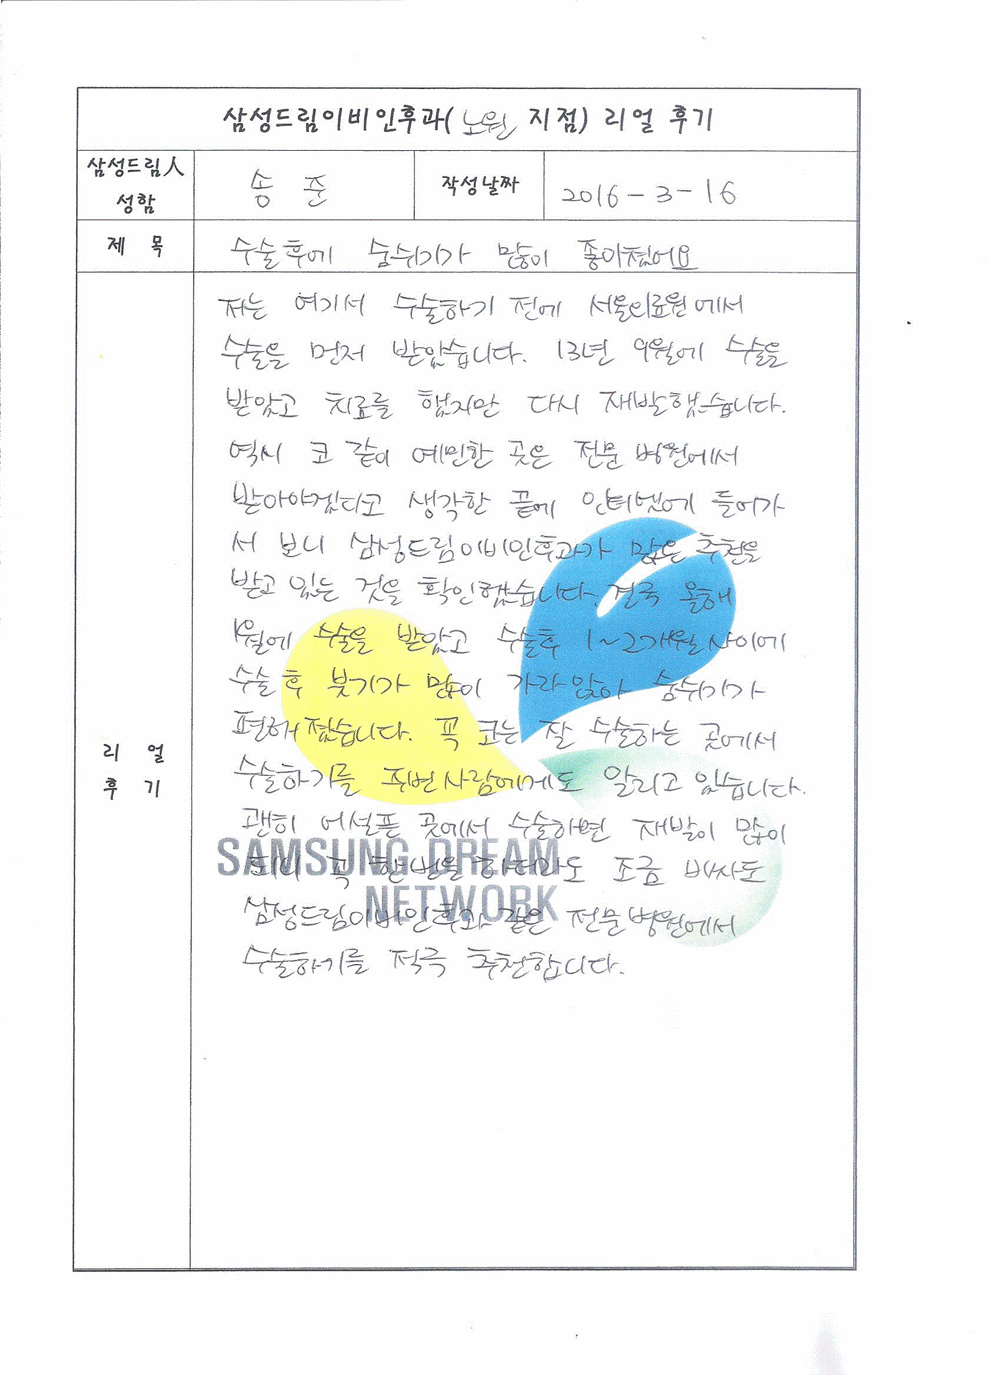 삼성드림이비인후과(노원 지점) 리얼 후기
삼성드림人 성함
송 준
작성날짜
2016-3-16
제 목
수술후에 숨쉬기가 많이 좋아졌어요
리 얼 후 기
저는 여기서 수술하기 전에 서울의료원에서
수술을 먼저 받았습니다. 13년 9월에 수술을
받았고 치료를 했지만 다시 재발했습니다.
역시 코 같이 예민한 곳은 전문 병원에서
받아야겠다고 생각한 끝에 인터넷에 들어가
서 보니 삼성드림이비인후과가 많은 추천을
받고 있는 것을 확인했습니다. 결국 올해
1월에 수술을 받았고 수술후 1~2개월 사이에
수술 후 붓기가 많이 가라 앉아 숨쉬기가
편해 졌습니다. 꼭 코는 잘 수술하는 곳에서
수술하기를 주변 사람에게도 알리고 있습니다.
괜히 어설픈 곳에서 수술하면 재발이 많이
되니 꼭 한번을 하더라도 조금 비싸도
삼성드림이비인후과 같은 전문 병원에서
수술하기를 적극 추천합니다.
SAMSUNG DREAM
NETWORK